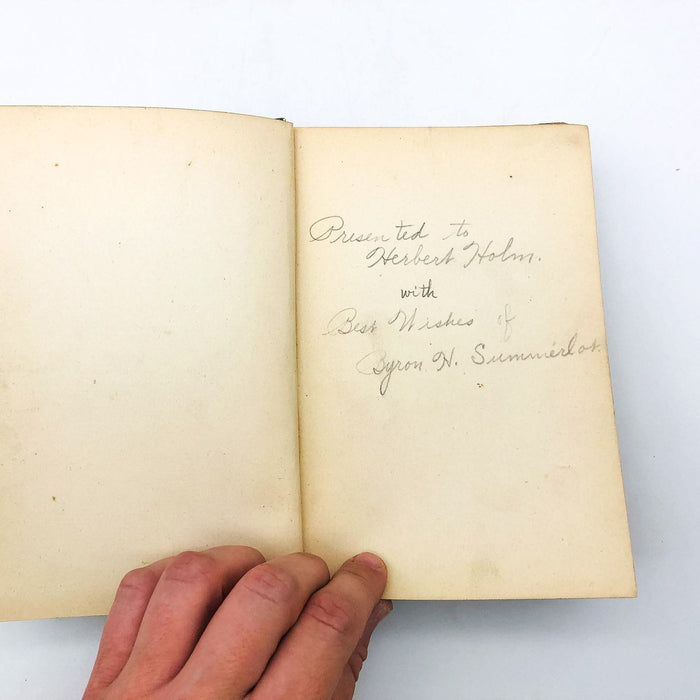 Presented to
Herbert Holm.
with
Best Wishes of
Byron H. Summerlot.